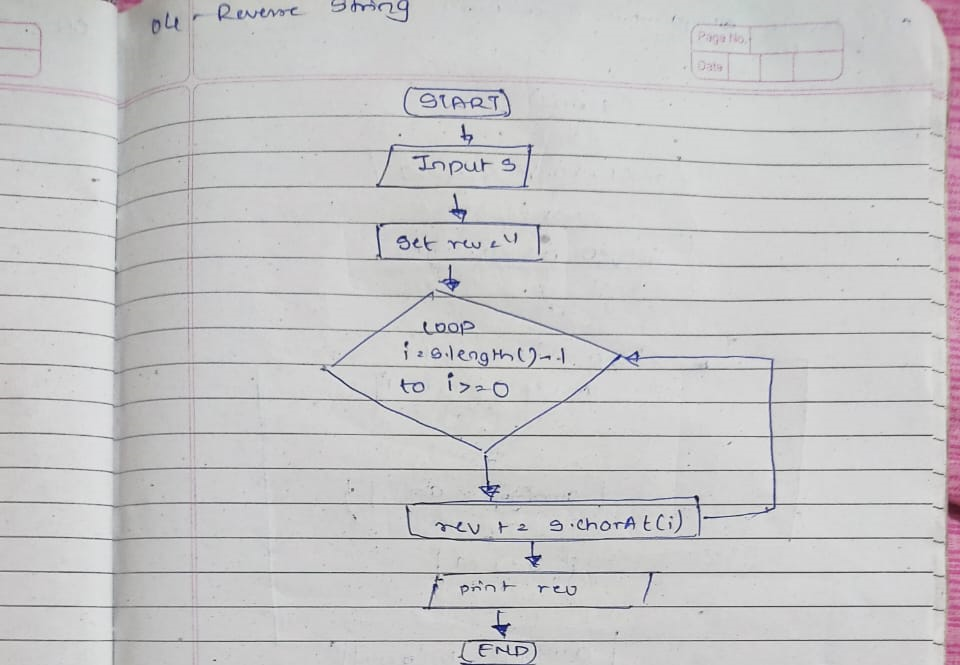 04 - Reverse String
Page No.
Date
START
Input s
Set rev = "
LOOP
i = s.length() - 1
to i >= 0
rev += s.charAt(i)
print rev
END